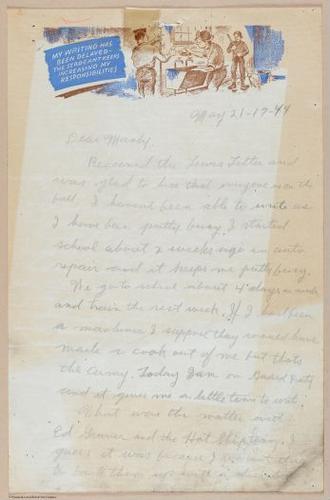 MY WRITING HAS
BEEN DELAYED-
THE SERGEANT KEEPS
INCREASING MY
RESPONSIBILITIES
May 21-1944
Dear Manly.
Received the News Letter and
was glad to hear that everyone was on the
ball. I havent been able to write as
I have been pretty busy. I started
school about 2 weeks ago in auto
repair and it keeps me pretty busy.
We go to school about 4 days a week
and train the rest week. If I had been
a machinist I suppose they would have
made a cook out of me but thats
the army. Today I am on Guard Duty
and it gives me a little time to write.
What were the matter with
Ed and the Hot
guess it was because I